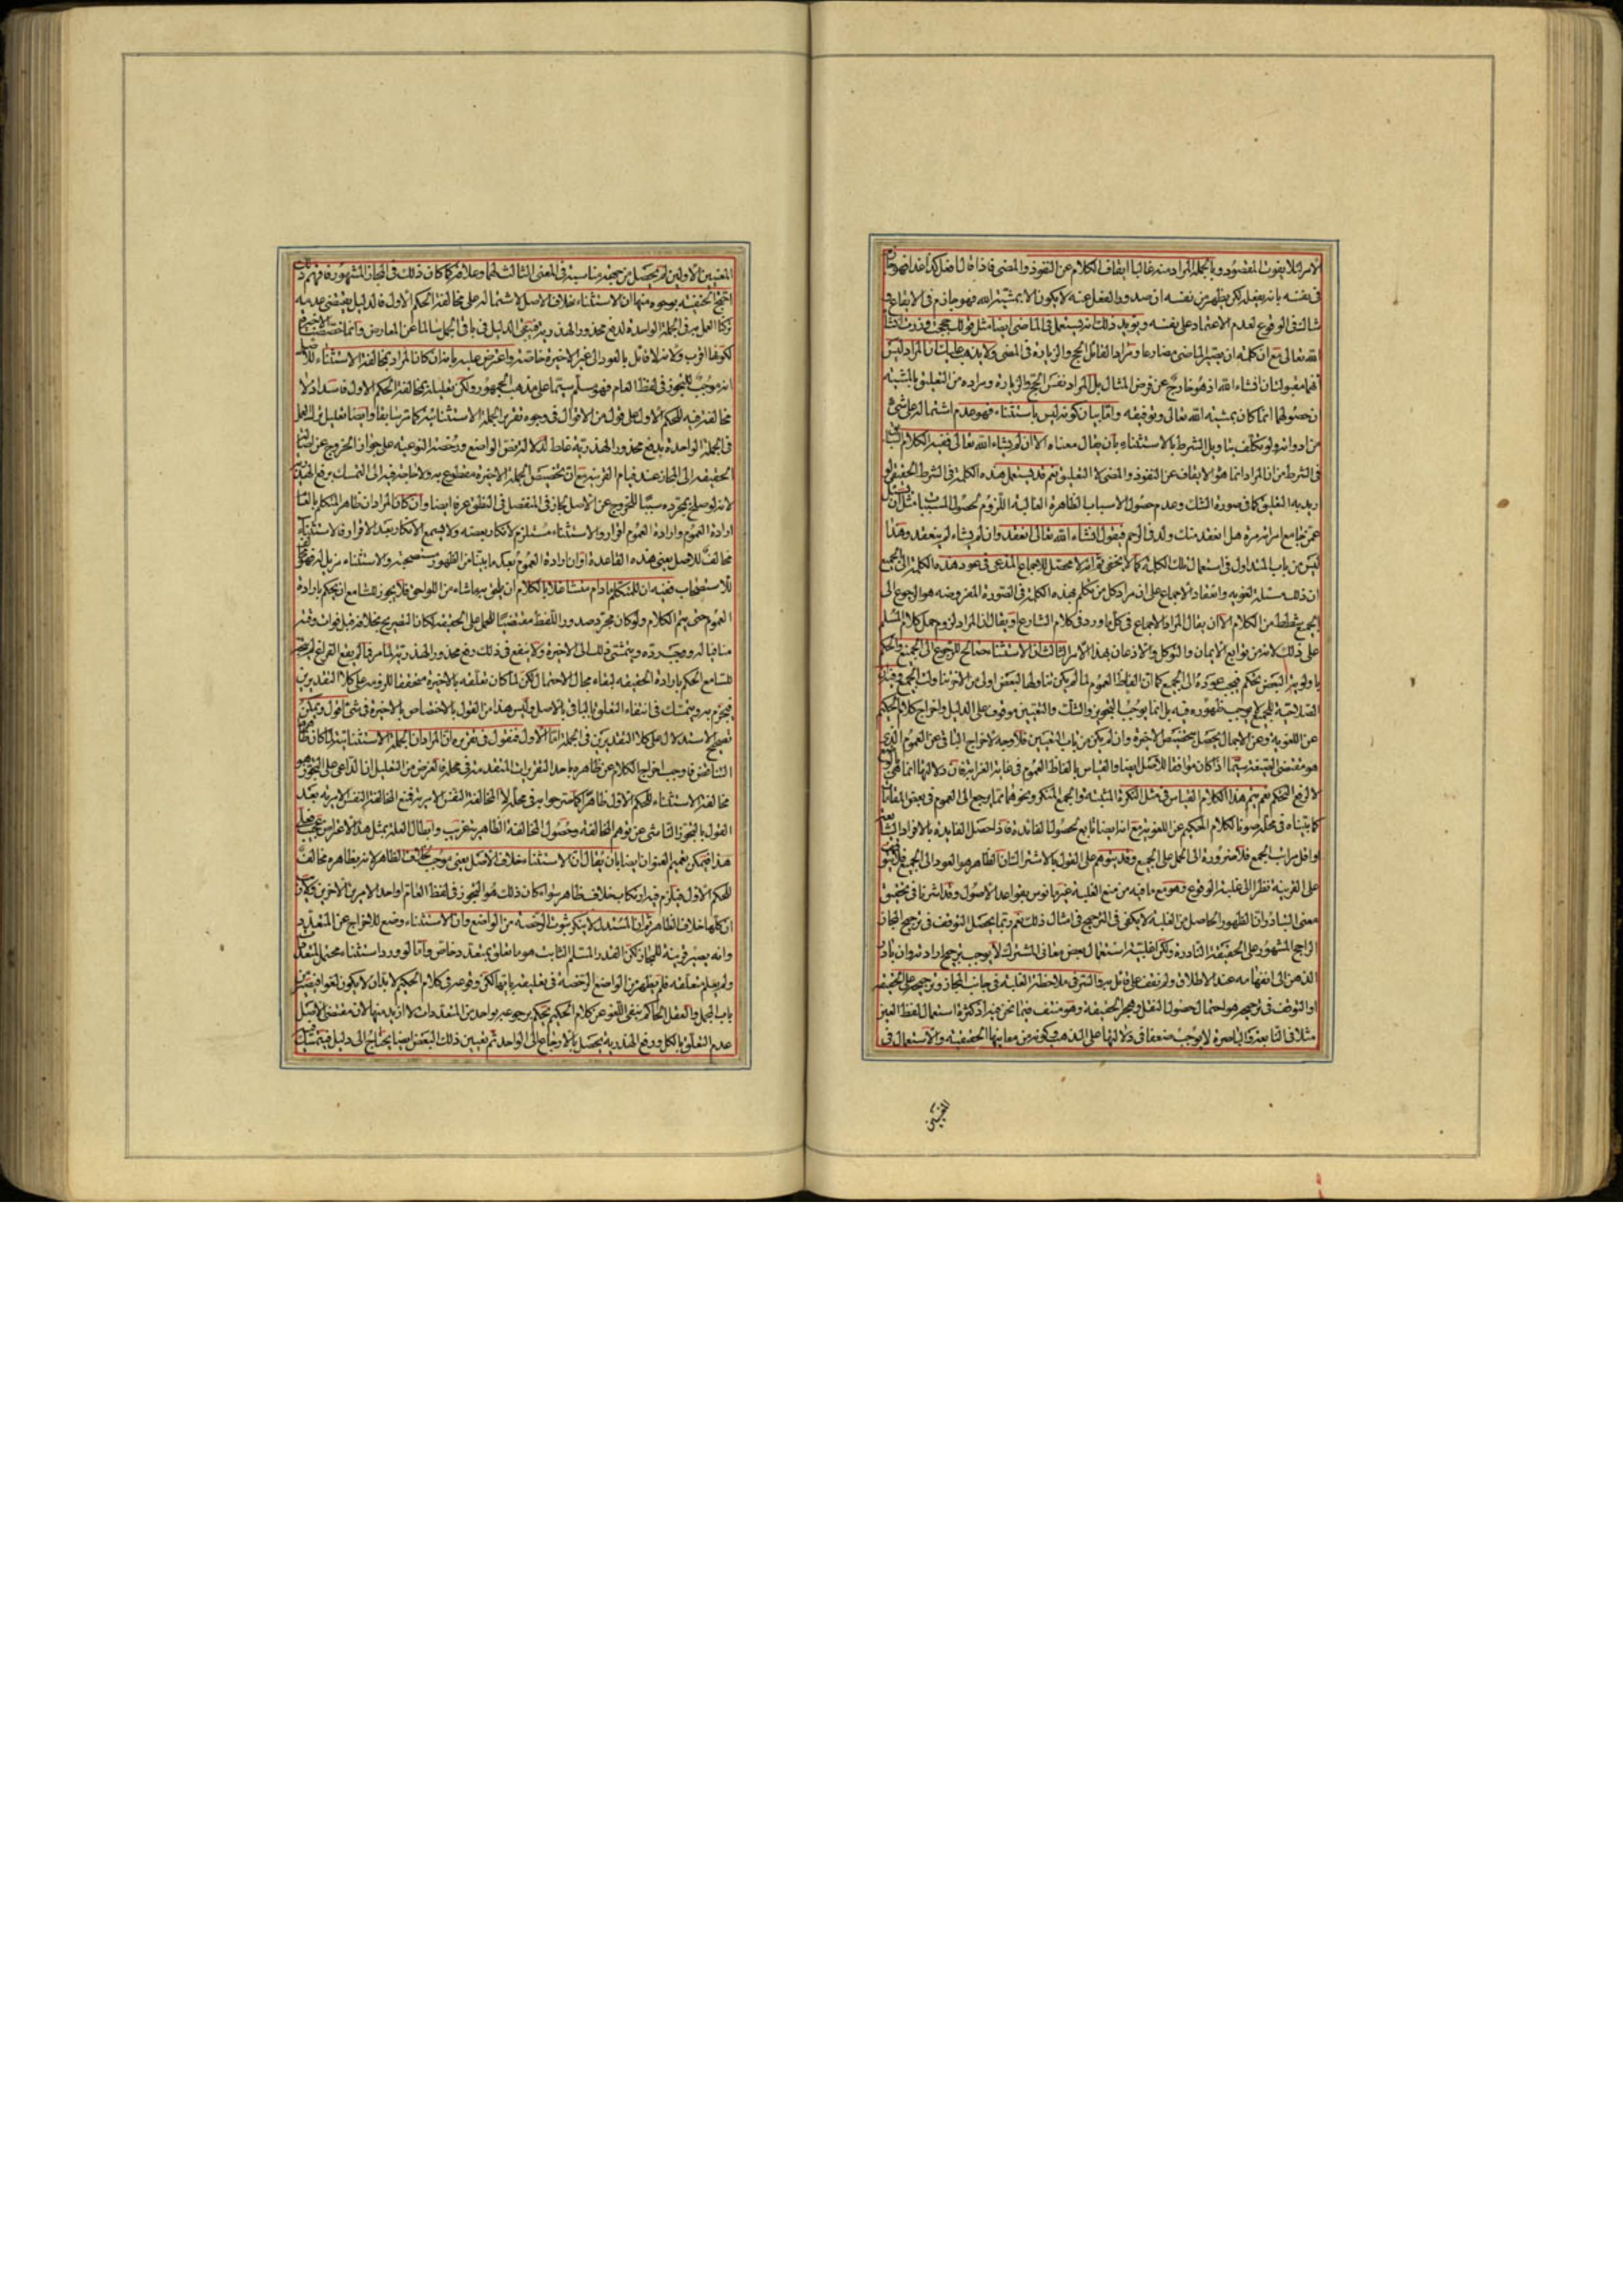 الامر لئلا يفوت المقصود وبالجملة المراد منه غالبا ايقاف الكلام عن النفوذ والمضى فاذا قال افعل كذا غدا فهو جازم
فى نفسه بانه يفعله لكن يظهر من نفسه ان صدور الفعل عنه لا يكون الا بمشية الله فهو جازم فى الايقاع و
شاك فى الوقوع لعدم الاعتماد على نفسه ويؤيد ذلك انه يستعمل فى الماضى ايضا مثل قولك حججت وزرت انشاء
الله تعالى مع ان كلمة ان يصير الماضى مضارعا ومراد القائل الحج والزيارة فى المضى ولا يذهب عليك ان المراد ليس
انهما مقبولتان انشاء الله اذ هو خارج عن فرض المثال بل المراد نفس الحج والزيارة ومراده من التعليق بالمشية
ان حصولهما انما كان بمشية الله تعالى وتوفيقه واما بيان كونه ليس باستثناء فهو عدم اشتماله على شئ
من ادواته ولو تكلف بتاويل الشرط بالاستثناء بان يقال معناه الا ان لم يشاء الله تعالى ففيه الكلام السابق
فى الشرط من ان المراد انما هو الايقاف عن النفوذ والمضى لا التعليق نعم قد يستعمل هذه الكلمة فى الشرط الحقيقى لو
اريد به التعليق كما فى صورة الشك وعدم حصول الاسباب الظاهرة الغالبة اللزوم لحصول المسببات مثل ان يسئل
عمن جامع امراته مرة هل انعقد منك ولد فى الرحم فيقول انشاء الله تعالى انعقد وان لم يشاء لم ينعقد وهذا
ليس من باب المتداول فى استعمال تلك الكلمة كما لا يخفى ثم انه لا محصل للاجماع المدعى فى عود هذه الكلمة الى الجميع
ان ذلك مسئلة لغوية وانعقاد الاجماع على ان مراد كل من تكلم بهذه الكلمة فى الصورة المفروضة هو الرجوع الى
الجميع شطط من الكلام الا ان يقال المراد الاجماع فى كل ما ورد فى كلام الشارع او يقال ان المراد لزوم حمل كلام المسلم
على ذلك لانه من توابع الايمان والتوكل والاذعان بهذا الامر الثالث ان الاستثناء صالح للرجوع الى الجميع والحكم
باولوية البعض تحكم فيجب عوده الى الجميع كما ان الفاظ العموم لما لم يكن تناولها لبعض اولى من الاخر تناولت الجميع وفيه ان
الصلاحية للجميع لا يوجب ظهوره فيه بل انما يوجب التجويز والشك والتعيين موقوف على الدليل واخراج كلام الحكيم
عن اللغوية وعن الاجمال يحصل بتخصيص الاخيرة وان لم يكن من باب التعيين فلا وجه لاخراج الباقى عن العموم الذى
هو مقتضى الحقيقة سيما اذا كان موافقا للاصل ايضا والقياس بالفاظ العموم فى غاية الغرابة فان دلالتها انما هى بالوضع
لا لرفع التحكم نعم يتم هذا الكلام القياس فى مثل النكرة المثبتة والجمع المنكر ونحوهما مما يرجع الى العموم فى بعض المقامات
كما بيناه فى محله صونا لكلام الحكيم عن اللغوية مع انه ايضا تابع لحصول الفائدة فاذا حصل الفايدة بالافراد الشايعة
او اقل مراتب الجمع فلا ضرورة الى الحمل على الجميع وقد يتوهم على القول بالاشتراك ان الظاهر هو العود الى الجميع
على القرينة نظرا الى غلبة الوقوع وهو مع ما فيه من منع الغلبة غير مانوس بقواعد الاصول وقد اشرنا فى تحقيق
معنى التبادر ان الظهور الحاصل من الغلبة لا يكفى فى الترجيح فى امثال ذلك نعم ربما يحصل التوقف فى ترجيح المجاز
الراجح المشهور على الحقيقة النادرة ولكن اغلبية استعمال بعض معانى المشترك لا يوجب ترجيح ارادته وان بادر
الذهن الى انفهامه عند الاطلاق ولم نقف على قائل به والسر فى ملاحظة الغلبة فى جانب المجاز وترجيحه على الحقيقة
او التوقف فى ترجيحه هو احتمال حصول النقل وهجر الحقيقة وهو منتف فيما نحن فيه اذ كثرة استعمال لفظ العين
مثلا فى النابعة والباصرة لا يوجب ضعفا فى دلالتها على الذهب وكونه من معانيها الحقيقية والاستعمال فى
المعنيين
المعنيين الاولين لم يحصل من جهة مناسبة فى المعنى الثالث لهما وعلاقة كما كان ذلك فى المجاز المشهور فافهم ذلك
احتج الحنفية بوجوه منها ان الاستثناء خلاف الاصل لاشتماله على مخالفة الحكم الاول فالدليل يقتضى عدمه
تركنا العمل به فى الجملة الواحدة لدفع محذور الهذرية فيبقى الدليل فى باقى الجمل سالما عن المعارض وانما خصصنا الاخيرة
لكونها اقرب ولانه لا قائل بالعود الى غير الاخيرة خاصة واعترض عليه بانه ان كان المراد بمخالفة الاستثناء للاصل
انه موجب للتجوز فى لفظ العام فهو مسلم سيما على مذهب الجمهور ولكن تعليله بمخالفة الحكم الاول فاسد اذ لا
مخالفة فيه للحكم الاول على قول من الاقوال فى وجوه تقرير الجملة الاستثنائية كما مر سابقا وايضا تعليل ترك العمل
فى الجملة الواحدة بدفع محذور الهذرية غلط لدلالة نص الواضع ورخصته النوعية على جواز الخروج عن اصالة
الحقيقة الى المجاز عند قيام القرينة مع ان تخصيص الجملة الاخيرة مقطوع به ولا حاجة فيه الى التمسك برفع الهذرية
لانه لو صلح بمجرده سببا للخروج عن الاصل لجاز فى المنفصل فى النطق عرفا ايضا وان كان المراد ان ظاهر المتكلم بالعام
ارادة العموم وارادة العموم اقرار والاستثناء مستلزم لانكار بعضه ولا يسمع الانكار بعد الاقرار فالاستثناء
مخالف للاصل يعنى هذه القاعدة او ان ارادة العموم بعد ما بينا من الظهور مستصحبة والاستثناء مزيل له فهو مخالف
للاستصحاب ففيه ان للمتكلم ما دام متشاغلا بالكلام ان يلحق به ما شاء من اللواحق فلا يجوز للسامع ان يحكم بارادة
العموم حتى يتم الكلام ولو كان مجرد صدور اللفظ مقتضيا للحمل على الحقيقة لكان التصريح بخلافه قبل فوات وقته
منافيا له ووجب رده ويتمشى ذلك الى الاخيرة ولا ينفع فى ذلك دفع محذور الهذرية لما مر فما لم يقع الفراغ لم يتجه
للسامع الحكم بارادة الحقيقة لبقاء مجال الاحتمال لكن لما كان تعلقه بالاخيرة متحققا للزومه على كلا التقديرين
فيجزم به ويتمسك فى انتفاء التعلق بالباقى بالاصل وليس هذا من القول بالاختصاص بالاخيرة فى شئ اقول ويمكن
تصحيح الاستدلال على كلا التقديرين فى الجملة اما الاول فنقول فى تقريره ان المراد ان الجملة الاستثنائية لما كان ظاهرها
التناقض فاوجب اخراج الكلام عن ظاهره باحد التقريرات المتقدمة فى محله فالغرض من التعليل ان الداعى على التجوز هو
مخالفة الاستثناء للحكم الاول ظاهرا كما صرحوا به فى محله لا المخالفة النفس الامرية فمنع المخالفة النفس الامرية بعد
القول بالتجوز الناشى عن توهم المخالفة وحصول المخالفة الظاهرية غريب وابطال العلة بمثل هذا الاعتراض عجيب
هذا فيمكن تعميم العنوان ايضا بان يقال ان الاستثناء خلاف الاصل يعنى موجب لخلاف الظاهر لانه بظاهره مخالف
للحكم الاول فيلزم فيه ارتكاب خلاف ظاهر سواء كان ذلك هو التجوز فى لفظ العام او احد الامرين الاخرين
ان كلها خلاف الظاهر ثم ان المستدل لا ينكر ثبوت الرخصة من الواضع وان الاستثناء وضع للاخراج عن المتعدد
وانه يصير قرينة للمجاز لكن القدر المسلم الثابت هو ما تعلق بمتعدد خاص واما لو ورد استثناء محتمل لمتعدد
ولم يعلم متعلقه فلم يظهر من الواضع الرخصة فى تعليقه بايتها لكن وقوعه فى كلام الحكيم لا بد ان لا يكون لغوا فيصير من
باب المجمل والعقل الحاكم بنفى اللغو عن كلام الحكيم يحكم برجوعه بواحد من المتعددات لا ازيد منها لان مقتضى الاصل
عدم التعلق بالكل ودفع الهذرية يحصل بالارجاع الى الواحد ثم تعيين ذلك البعض ايضا يحتاج الى دليل فيتمسك